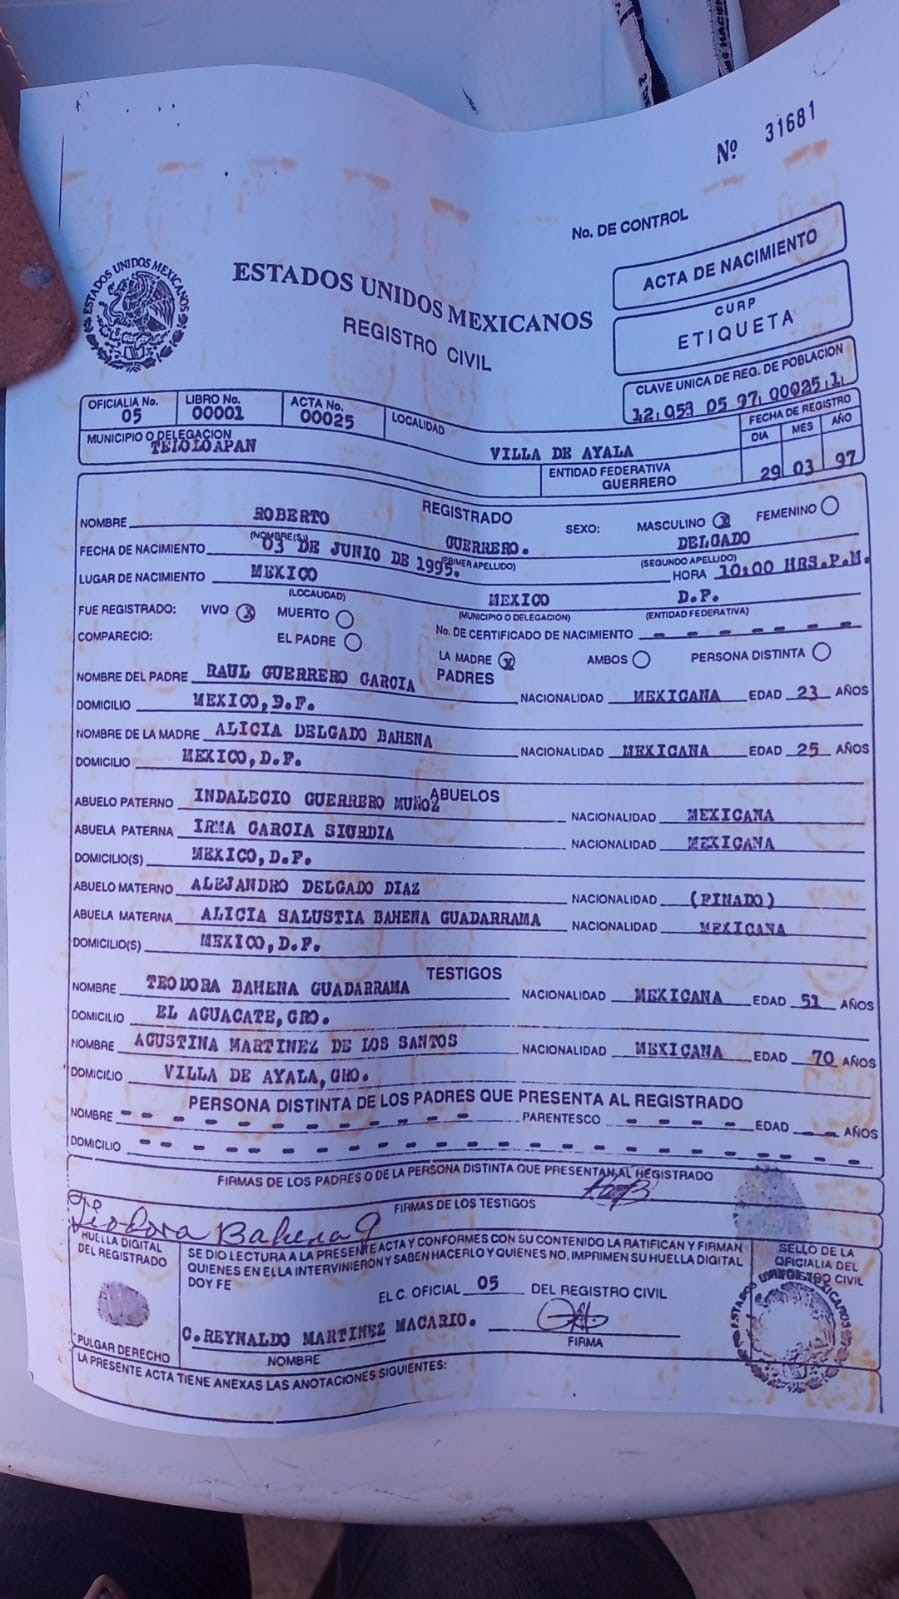 Nº 31681
No. DE CONTROL
ESTADOS UNIDOS MEXICANOS
ESTADOS UNIDOS MEXICANOS
REGISTRO CIVIL
ACTA DE NACIMIENTO
CURP
ETIQUETA
CLAVE UNICA DE REG. DE POBLACION
12 053 05 97 00025 1
OFICIALIA No. 05 LIBRO No. 00001 ACTA No. 00025 LOCALIDAD VILLA DE AYALA
FECHA DE REGISTRO
DIA MES AÑO
29 03 97
MUNICIPIO O DELEGACION TELOLOAPAN ENTIDAD FEDERATIVA GUERRERO
REGISTRADO
NOMBRE ROBERTO GUERRERO. DELGADO SEXO: MASCULINO X FEMENINO
(NOMBRE(S)) (PRIMER APELLIDO) (SEGUNDO APELLIDO)
FECHA DE NACIMIENTO 03 DE JUNIO DE 1995. HORA 10:00 HRS.P.M.
LUGAR DE NACIMIENTO MEXICO MEXICO D.F.
(LOCALIDAD) (MUNICIPIO O DELEGACION) (ENTIDAD FEDERATIVA)
FUE REGISTRADO: VIVO X MUERTO No. DE CERTIFICADO DE NACIMIENTO - - - - - - -
COMPARECIO: EL PADRE LA MADRE X AMBOS PERSONA DISTINTA
PADRES
NOMBRE DEL PADRE RAUL GUERRERO GARCIA NACIONALIDAD MEXICANA EDAD 23 AÑOS
DOMICILIO MEXICO, D.F.
NOMBRE DE LA MADRE ALICIA DELGADO BAHENA NACIONALIDAD MEXICANA EDAD 25 AÑOS
DOMICILIO MEXICO, D.F.
ABUELOS
ABUELO PATERNO INDALECIO GUERRERO MUÑOZ NACIONALIDAD MEXICANA
ABUELA PATERNA IRMA GARCIA SIURDIA NACIONALIDAD MEXICANA
DOMICILIO(S) MEXICO, D.F.
ABUELO MATERNO ALEJANDRO DELGADO DIAZ NACIONALIDAD (FINADO)
ABUELA MATERNA ALICIA SALUSTIA BAHENA GUADARRAMA NACIONALIDAD MEXICANA
DOMICILIO(S) MEXICO, D.F.
TESTIGOS
NOMBRE TEODORA BAHENA GUADARRAMA NACIONALIDAD MEXICANA EDAD 51 AÑOS
DOMICILIO EL AGUACATE, GRO.
NOMBRE AGUSTINA MARTINEZ DE LOS SANTOS NACIONALIDAD MEXICANA EDAD 70 AÑOS
DOMICILIO VILLA DE AYALA, GRO.
PERSONA DISTINTA DE LOS PADRES QUE PRESENTA AL REGISTRADO
NOMBRE - - - - - - - - - - - PARENTESCO - - - - EDAD - - AÑOS
DOMICILIO - - - - - - - - - - - - - - - - - - -
FIRMAS DE LOS PADRES O DE LA PERSONA DISTINTA QUE PRESENTAN AL REGISTRADO
FIRMAS DE LOS TESTIGOS
Teodora Bahena G
HUELLA DIGITAL DEL REGISTRADO
SE DIO LECTURA A LA PRESENTE ACTA Y CONFORMES CON SU CONTENIDO LA RATIFICAN Y FIRMAN
QUIENES EN ELLA INTERVINIERON Y SABEN HACERLO Y QUIENES NO, IMPRIMEN SU HUELLA DIGITAL
DOY FE
SELLO DE LA OFICIALIA DEL REGISTRO CIVIL
EL C. OFICIAL 05 DEL REGISTRO CIVIL
C. REYNALDO MARTINEZ MACARIO.
NOMBRE FIRMA
PULGAR DERECHO
LA PRESENTE ACTA TIENE ANEXAS LAS ANOTACIONES SIGUIENTES: